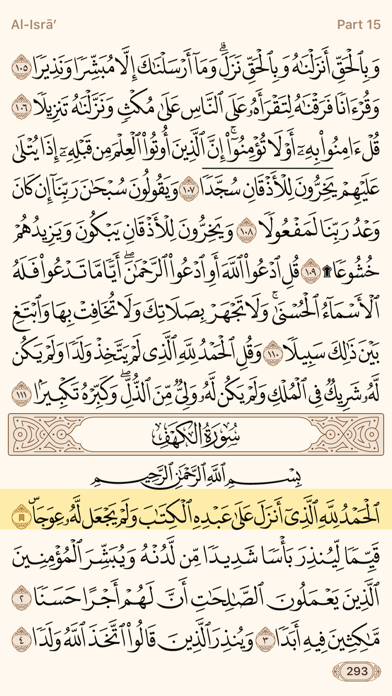 Al-Isrā’ Part 15
وَبِٱلْحَقِّ أَنزَلْنَٰهُ وَبِٱلْحَقِّ نَزَلَ ۗ وَمَآ أَرْسَلْنَٰكَ إِلَّا مُبَشِّرًا وَنَذِيرًا ١٠٥
وَقُرْءَانًا فَرَقْنَٰهُ لِتَقْرَأَهُۥ عَلَى ٱلنَّاسِ عَلَىٰ مُكْثٍ وَنَزَّلْنَٰهُ تَنزِيلًا ١٠٦
قُلْ ءَامِنُوا۟ بِهِۦٓ أَوْ لَا تُؤْمِنُوٓا۟ ۚ إِنَّ ٱلَّذِينَ أُوتُوا۟ ٱلْعِلْمَ مِن قَبْلِهِۦٓ إِذَا يُتْلَىٰ
عَلَيْهِمْ يَخِرُّونَ لِلْأَذْقَانِ سُجَّدًا ١٠٧ وَيَقُولُونَ سُبْحَٰنَ رَبِّنَآ إِن كَانَ
وَعْدُ رَبِّنَا لَمَفْعُولًا ١٠٨ وَيَخِرُّونَ لِلْأَذْقَانِ يَبْكُونَ وَيَزِيدُهُمْ
خُشُوعًا ۩ ١٠٩ قُلِ ٱدْعُوا۟ ٱللَّهَ أَوِ ٱدْعُوا۟ ٱلرَّحْمَٰنَ ۖ أَيًّا مَّا تَدْعُوا۟ فَلَهُ
ٱلْأَسْمَآءُ ٱلْحُسْنَىٰ ۚ وَلَا تَجْهَرْ بِصَلَاتِكَ وَلَا تُخَافِتْ بِهَا وَٱبْتَغِ
بَيْنَ ذَٰلِكَ سَبِيلًا ١١٠ وَقُلِ ٱلْحَمْدُ لِلَّهِ ٱلَّذِى لَمْ يَتَّخِذْ وَلَدًا وَلَمْ يَكُن
لَّهُۥ شَرِيكٌ فِى ٱلْمُلْكِ وَلَمْ يَكُن لَّهُۥ وَلِىٌّ مِّنَ ٱلذُّلِّ ۖ وَكَبِّرْهُ تَكْبِيرًۢا ١١١
سُورَةُ ٱلْكَهْفِ
بِسْمِ ٱللَّهِ ٱلرَّحْمَٰنِ ٱلرَّحِيمِ
ٱلْحَمْدُ لِلَّهِ ٱلَّذِىٓ أَنزَلَ عَلَىٰ عَبْدِهِ ٱلْكِتَٰبَ وَلَمْ يَجْعَل لَّهُۥ عِوَجَاۜ
قَيِّمًا لِّيُنذِرَ بَأْسًا شَدِيدًا مِّن لَّدُنْهُ وَيُبَشِّرَ ٱلْمُؤْمِنِينَ
ٱلَّذِينَ يَعْمَلُونَ ٱلصَّٰلِحَٰتِ أَنَّ لَهُمْ أَجْرًا حَسَنًا ٢
مَّٰكِثِينَ فِيهِ أَبَدًا ٣ وَيُنذِرَ ٱلَّذِينَ قَالُوا۟ ٱتَّخَذَ ٱللَّهُ وَلَدًا ٤
293